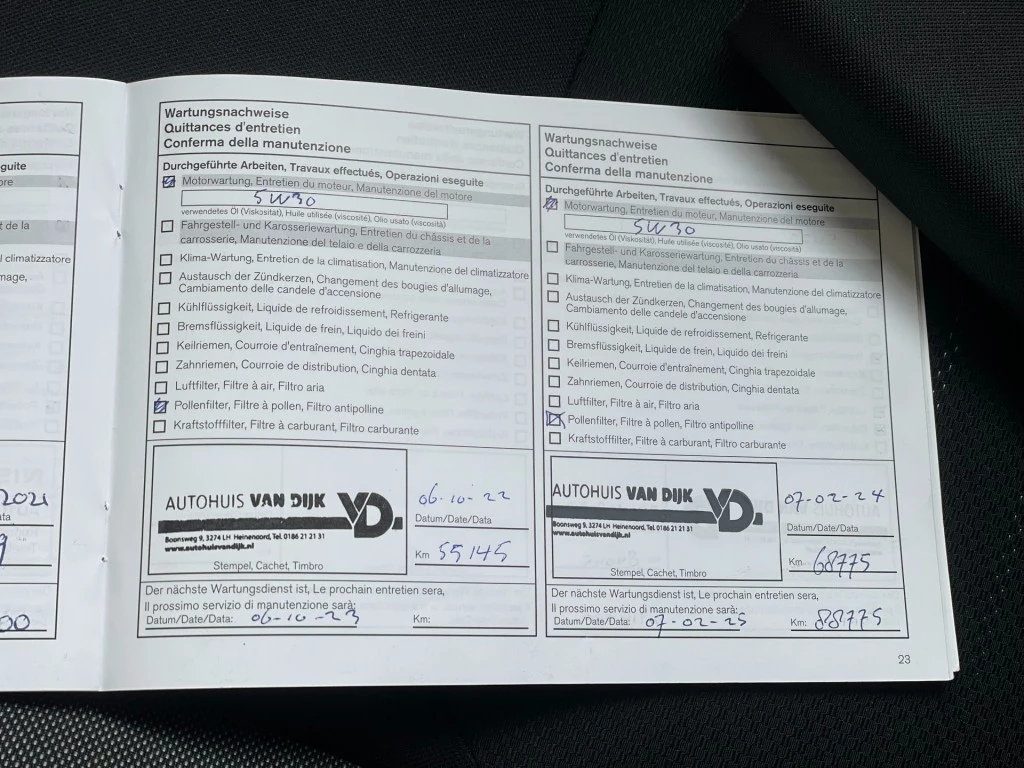 guite
ore
t de la
l climatizzatore
mage,
2021
ata
00
Wartungsnachweise
Quittances d'entretien
Conferma della manutenzione
Durchgeführte Arbeiten, Travaux effectués, Operazioni eseguite
Motorwartung, Entretien du moteur, Manutenzione del motore
5W30
verwendetes Öl (Viskosität), Huile utilisée (viscosité), Olio usato (viscosità)
Fahrgestell- und Karosseriewartung, Entretien du châssis et de la
carrosserie, Manutenzione del telaio e della carrozzeria
Klima-Wartung, Entretien de la climatisation, Manutenzione del climatizzatore
Austausch der Zündkerzen, Changement des bougies d'allumage,
Cambiamento delle candele d'accensione
Kühlflüssigkeit, Liquide de refroidissement, Refrigerante
Bremsflüssigkeit, Liquide de frein, Liquido dei freini
Keilriemen, Courroie d'entraînement, Cinghia trapezoidale
Zahnriemen, Courroie de distribution, Cinghia dentata
Luftfilter, Filtre à air, Filtro aria
Pollenfilter, Filtre à pollen, Filtro antipolline
Kraftstofffilter, Filtre à carburant, Filtro carburante
AUTOHUIS VAN DIJK VD.
Boonsweg 9, 3274 LH Heinenoord, Tel. 0186 21 21 31
www.autohuisvandijk.nl
Stempel, Cachet, Timbro
06-10-22
Datum/Date/Data
Km 55145
Der nächste Wartungsdienst ist, Le prochain entretien sera,
Il prossimo servizio di manutenzione sarà:
Datum/Date/Data: 06-10-23 Km:
Wartungsnachweise
Quittances d'entretien
Conferma della manutenzione
Durchgeführte Arbeiten, Travaux effectués, Operazioni eseguite
Motorwartung, Entretien du moteur, Manutenzione del motore
5W30
verwendetes Öl (Viskosität), Huile utilisée (viscosité), Olio usato (viscosità)
Fahrgestell- und Karosseriewartung, Entretien du châssis et de la
carrosserie, Manutenzione del telaio e della carrozzeria
Klima-Wartung, Entretien de la climatisation, Manutenzione del climatizzatore
Austausch der Zündkerzen, Changement des bougies d'allumage,
Cambiamento delle candele d'accensione
Kühlflüssigkeit, Liquide de refroidissement, Refrigerante
Bremsflüssigkeit, Liquide de frein, Liquido dei freini
Keilriemen, Courroie d'entraînement, Cinghia trapezoidale
Zahnriemen, Courroie de distribution, Cinghia dentata
Luftfilter, Filtre à air, Filtro aria
Pollenfilter, Filtre à pollen, Filtro antipolline
Kraftstofffilter, Filtre à carburant, Filtro carburante
AUTOHUIS VAN DIJK VD.
Boonsweg 9, 3274 LH Heinenoord, Tel. 0186 21 21 31
www.autohuisvandijk.nl
Stempel, Cachet, Timbro
07-02-24
Datum/Date/Data
Km 68775
Der nächste Wartungsdienst ist, Le prochain entretien sera,
Il prossimo servizio di manutenzione sarà:
Datum/Date/Data: 07-02-25 Km: 88775
23